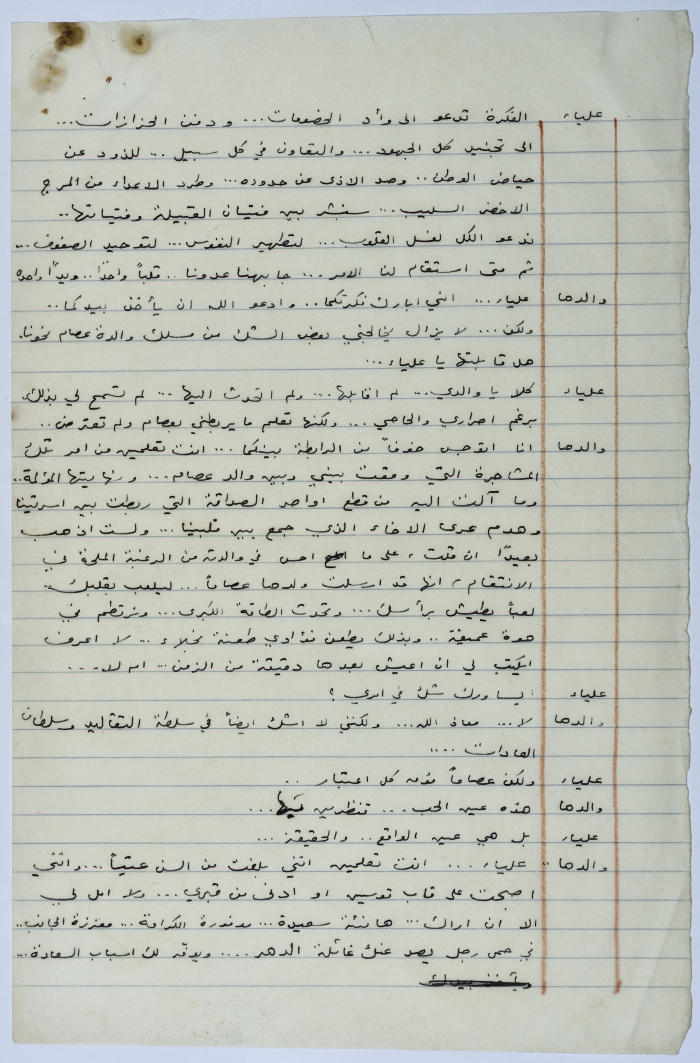 علياء الفكرة تدعو الى وأد الخصومات... ودفن الحزازات...
الى تجنيد كل الجهود... والتعاون في كل سبيل... للذود عن
حياض الوطن.. وصد الاذى عن حدوده... وطرد الاعداء من المرج
الاخضر السليب... سننشر بين فتيان القبيلة وفتياتها..
ندعو الكل لغسل القلوب... لتطهير النفوس... لتوحيد الصفوف...
ثم متى استقام لنا الامر... جابهنا عدونا.. قلباً واحداً.. ويداً واحدة
والدها علياء... انني ابارك فكرتكما.. وادعو الله ان يأخذ بيدكما..
ولكن... لا يزال يخالجني بعض الشك من مسلك والدة عصام نحونا.
هل قابلتها يا علياء...
علياء كلا يا والدي... لم اقابلها... ولم اتحدث اليها... لم تسمح لي بذلك..
برغم اصراري والحاحي... ولكنها تعلم ما يربطني بعصام ولم تعترض..
والدها انا اتوجس خوفاً من الرابطة بينكما... انت تعلمين من امر تلك
المشاجرة التي وقعت بيني وبين والد عصام... ونهايتها المؤلمة..
وما آلت اليه من قطع اواصر الصداقة التي ربطت بين اسرتينا
وهدم عرى الاخاء الذي جمع بين قلبينا... ولست اذهب
بعيداً ان قلت، على ما احس في والدته من الرغبة الملحة في
الانتقام، انها قد ارسلت ولدها عصاماً... ليلعب بقلبك..
لعباً يطيش برأسك... وتحدث الطامة الكبرى... ونرتطم في
هوة عميقة.. وبذلك يطعن فؤادي طعنة نجلاء... لا اعرف
ايكتب لي ان اعيش بعدها دقيقة من الزمن... ام لا...
علياء ايساورك شك في امري؟
والدها لا... معاذ الله... ولكنني لا اشك ايضاً في سلطة التقاليد وسلطان
العادات....
علياء ولكن عصاماً فوق كل اعتبار..
والدها هذه عين الحب... تنظرين بها...
علياء بل هي عين الواقع.. والحقيقة...
والدها.. علياء... انت تعلمين انني بلغت من السن عتياً... وانني
اصبحت على قاب قوسين او ادنى من قبري... ولا امل لي
الا ان اراك... هانئة سعيدة... موفورة الكرامة... معززة الجانب..
في حمى رجل يصد عنك غائلة الدهر.... ويوفر لك اسباب السعادة...